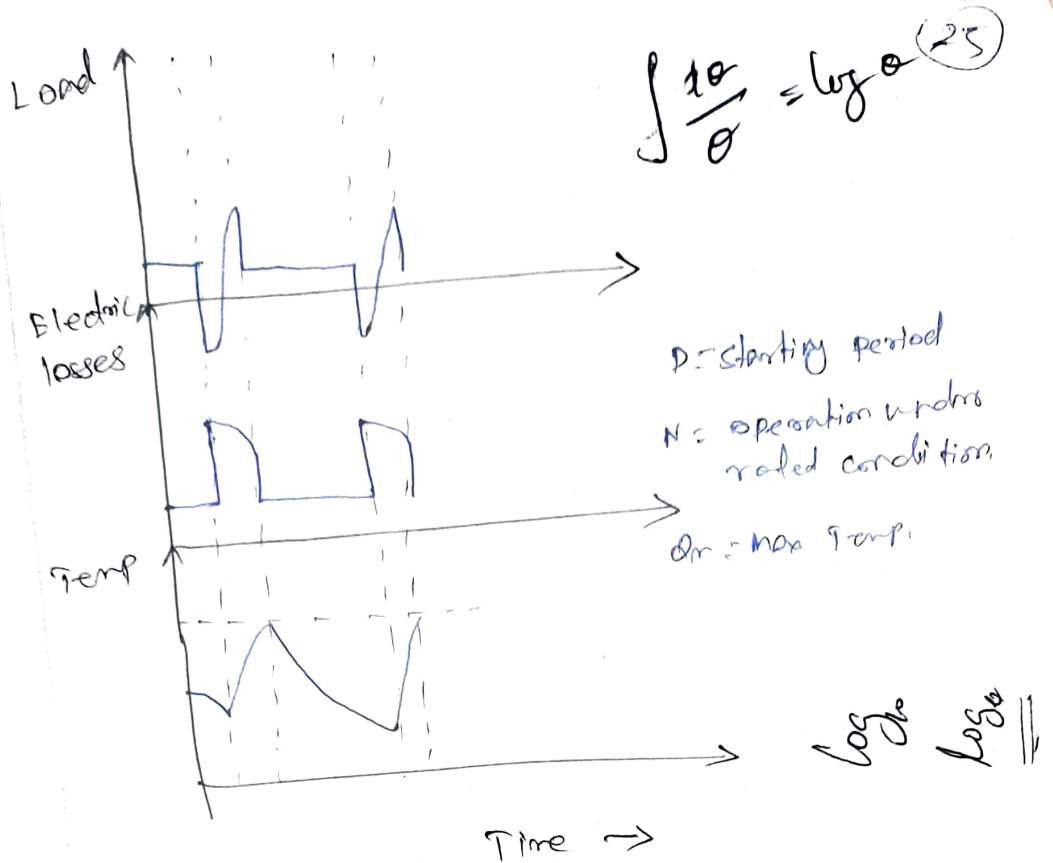 Load
∫ dθ/θ = log θ
25
Electric
losses
D = starting period
N = operation under
rated condition.
θm = max Temp.
Temp
log
log
Time →